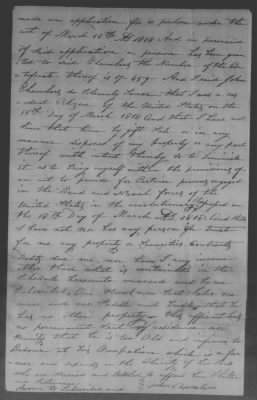 made an application for a pension under the
act of March 18th AD 1818 And in pursuance
of said application a pension has been gran
ted to said Chambers the Number of the Cer
tificate thereof is 17.459. And I said John
Chambers do Solemnly Swear that I was a res
ident Citizen of the United States on the
18th Day of March 1818 And that I have not
Since that time by gift Sale or in any
manner disposed of my property or any part
thereof with intent thereby So to diminish
it as to bring myself within the provisions of
an act to provide for Certain persons engaged
in the Land and Naval forces of the
United States in the revolutionary
the 18th Day of March AD 1818 And that
I have not Nor has any person in trust
for me any property or Securities Contracts
Debts due me, nor have I any income
other than what is contained in the
Schedule hereunto annexed and by me
Subscribed, One
one Saddle and that he
has no other property This
no permanent place of residence nor
family that he is too Old and infirm to
Labour at his Occupation which is a far
mer and depends on the
who are
Sworn to Subscribed and